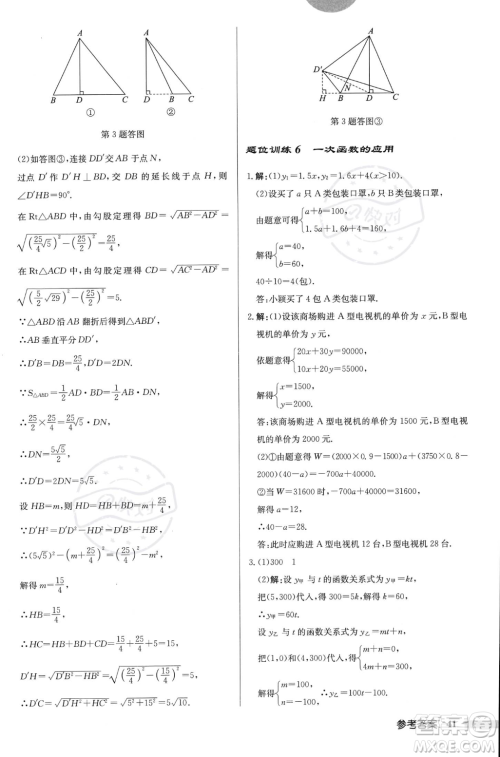 A
B
D
C
①
A
D
B
C
②
第 3 题答图
(2)如答图③,连接 DD′交 AB 于点 N,
过点 D′作 D′H⊥BD,交 DB 的延长线于点 H,
∠D′HB=90°.
在 Rt△ABD 中,由勾股定理得 BD=√(AB²−AD²)=
在 Rt△ACD 中,由勾股定理得 CD=√(AC²−AD²)=
∵△ABD 沿 AB 翻折后得到△ABD′,
∴AB 垂直平分 DD′,
∴D′B=DB=25/4,D′D=2DN.
∵S△ABD=1/2 AD·BD=1/2 AB·DN,
∴DN=5√5/2,
∴D′D=2DN=5√5.
设 HB=m,则 HD=HB+BD=m+25/4.
∵D′D²−HD²=D′B²−HB²,
∴(5√5)²−(m+25/4)²=(25/4)²−m²,
解得 m=15/4,
∴HB=15/4,
∴HC=HB+BD+CD=15/4+25/4+5=15,
D′H=√(D′B²−HB²)=√((25/4)²−(15/4)²)=5,
∴D′C=√(D′H²+HC²)=√(5²+15²)=5√10.
A
D′
N
H
B
D
C
第 3 题答图③
题位训练 6 一次函数的应用
1.解:(1)y₁=1.5x,y₂=1.6x+4(x>10).
(2)设买了 a 只 A 类包装口罩,b 只 B 类包装口罩,
由题意可得{a+b=100,
1.5a+1.6b+4=160,
解得{a=40,
b=60.
40÷10=4(包).
答:小颖买了 4 包 A 类包装口罩.
2.解:(1)设该商场购进 A 型电视机的单价为 x 元,B 型电视机的单价为 y 元,
依题意得{20x+30y=90000,
解得{x=1500,
y=2000.
答:该商场购进 A 型电视机的单价为 1500 元,B 型电视机的单价为 2000 元.
②当 W=31600 时,−700a+40000=31600,
解得 a=12,
∴40−a=28.
答:此时应购进 A 型电视机 12 台,B 型电视机 28 台.
3.(1)300 1
(2)解:设 y甲 与 t 的函数关系式为 y甲=kt,
把(5,300)代入,得 300=5k,解得 k=60,
∴y甲=60t.
设 y乙 与 t 的函数关系式为 y乙=mt+n,
把(1,0)和(4,300)代入,得{m+n=0,
4m+n=300,
解得{m=100,
n=−100,
∴y乙=100t−100.
参考答案